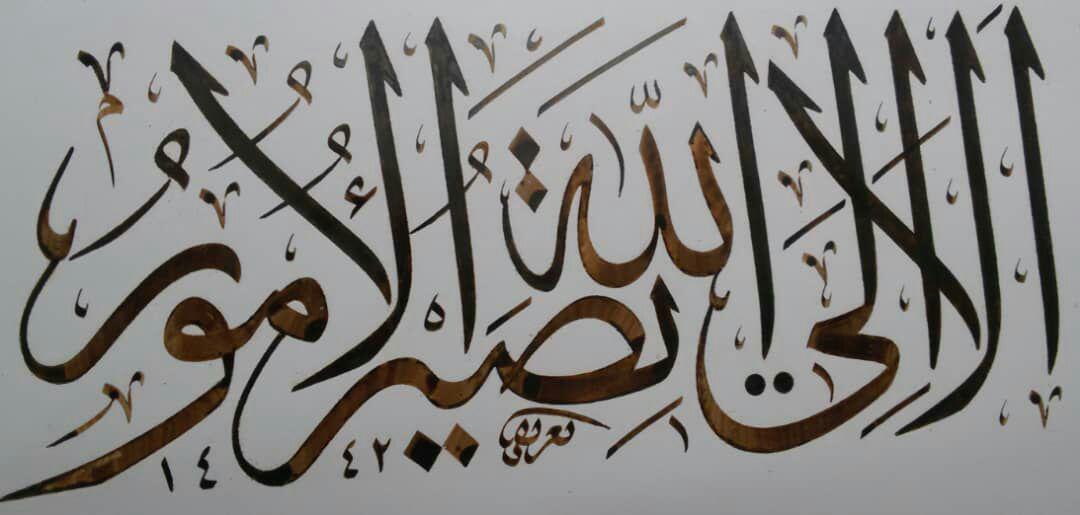 الا الى الله تصير الأمور
١٤٤٢